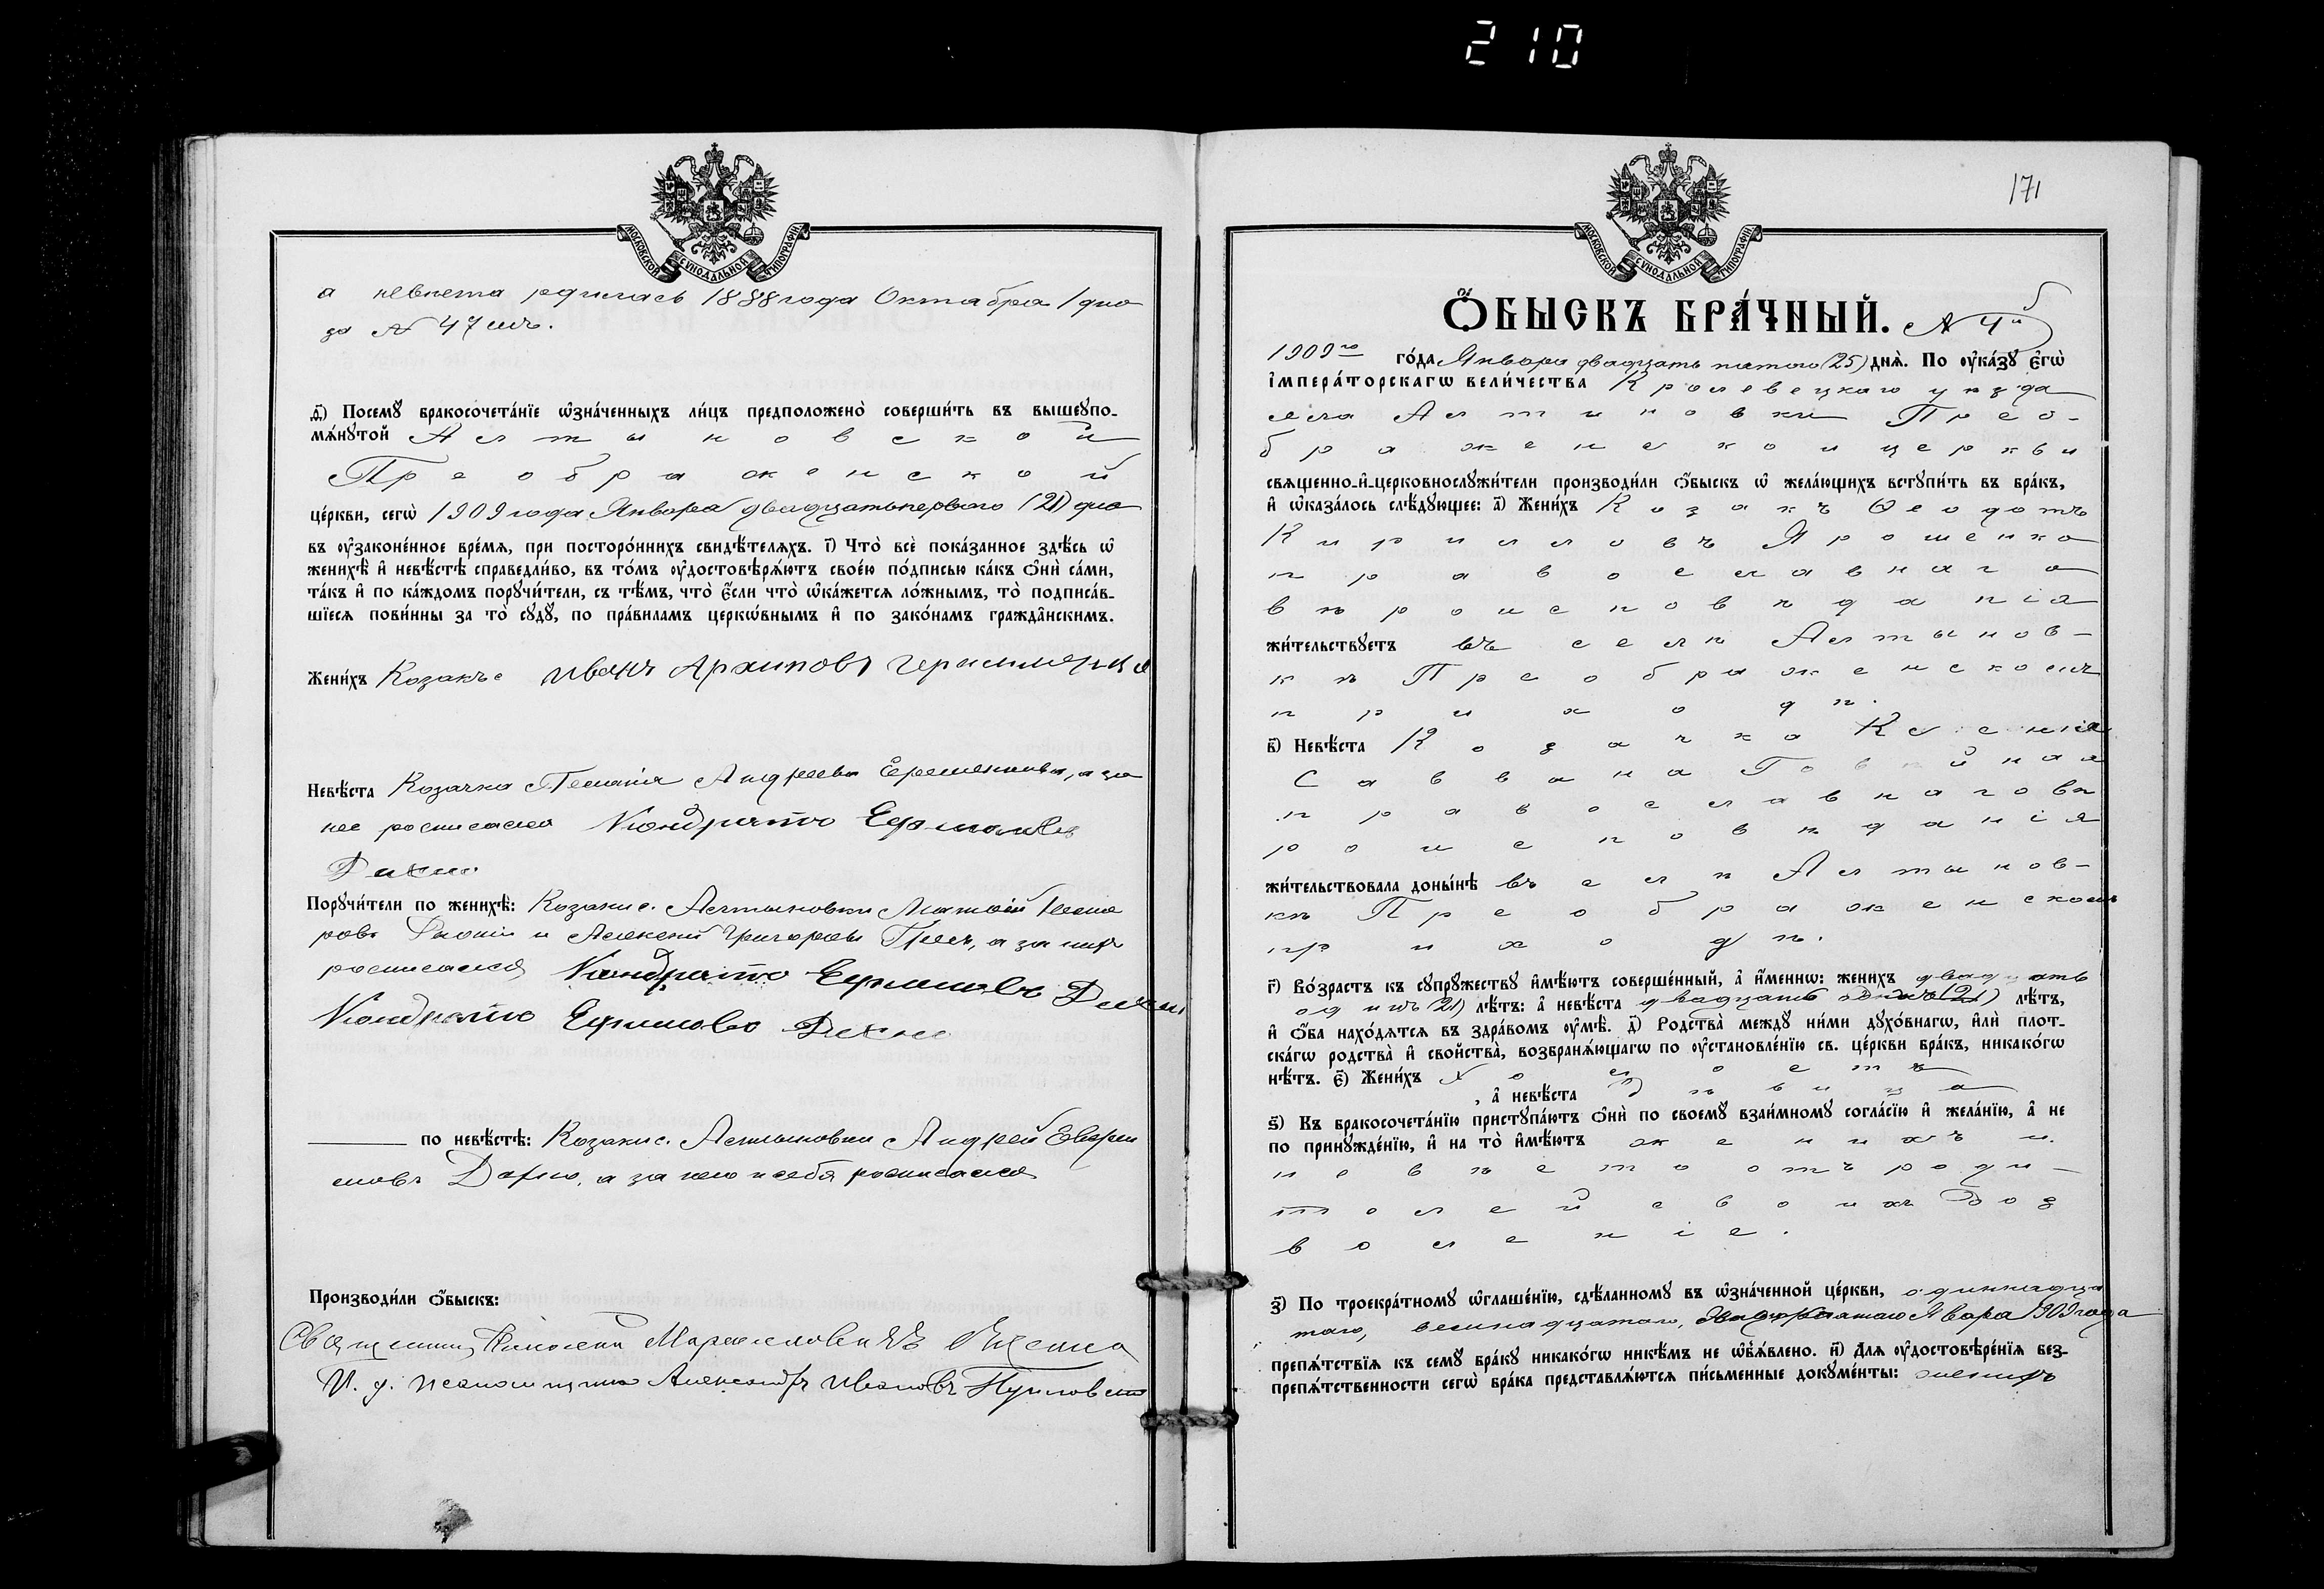 210
МОСКОВСКОЙ СѴНОДАЛЬНОЙ ТИПОГРАФІИ
а невеста родилась 1888 года Октабра 1 дня
за № 47 имъ.
Посемꙋ бракосочета́нїе ѡ҆зна́ченныхъ ли́цъ предположено̀ соверши́ть въ вышеꙋпо-
мѧ́нꙋтой Алтыновской
Преображенской
це́ркви, сегѡ̀ 1909 года Января двадцатьперваго (21) дня
въ ᲂу҆законе́нное вре́мѧ, при посторо́ннихъ свидѣ́телѧхъ. і҃) Что̀ всѐ пока́занное здѣ́сь ѡ҆
женихѣ̀ и҆ невѣ́стѣ справедли́во, въ то́мъ ᲂу҆достовѣрѧ́ютъ свое́ю по́дписью ка́къ ѻ҆нѝ са́ми,
та́къ и҆ по ка́ждомъ порꙋчи́тели, съ тѣ́мъ, что̀ є҆́сли что̀ ѡ҆ка́жетсѧ ло́жнымъ, то̀ подписа́в-
шїесѧ пови́нны за то̀ сꙋдꙋ̀, по пра́виламъ церкѡ́внымъ и҆ по зако́намъ гражда̑нскимъ.
Жени́хъ Козакъ Иванъ Архиповъ
Невѣ́ста Козачка Андреева а за
нее росписался Кондратъ Ефимовъ
Порꙋчи́тели по женихѣ̀: Козаки с. Алтыновки
и Алексей Григорьевъ а за нихъ
росписался Кондратъ Ефимовъ
Кондратъ Ефимовъ
по невѣ́стѣ: Козаки с. Алтыновки Андрей Ефри
мовъ а за него и себя росписался
Производи́ли ѻ҆́быскъ:
Священникъ
И. д. псаломщика Александръ Ивановъ
171
МОСКОВСКОЙ СѴНОДАЛЬНОЙ ТИПОГРАФІИ
Ѻ҆БЫСКЪ БРА́ЧНЫЙ. № 4й
1909го го́да Января двадцать пятаго (25) днѧ̀. По ᲂу҆ка́зꙋ є҆гѡ̀
і҆мпера́торскагѡ вели́чества Кролевецкаго уѣзда
села Алтиновки Прео-
браженской церкви
свѧщенно-и҆-церковнослꙋжи́тели производи́ли ѻ҆́быскъ ѡ҆ жела́ющихъ встꙋпи́ть въ бра́къ,
и҆ ѡ҆каза́лось слѣ́дꙋющее: а҃) Жени́хъ Козакъ Ѳеодотъ
Кирилловъ Ярошенко
православнаго
вѣроисповѣданія
жи́тельствꙋетъ въ селѣ Алтынов-
кѣ Преображенскомъ
приходѣ.
в҃) Невѣ́ста Козачка Ксенія
Саввина
православнаго вѣ
роисповѣданія
жи́тельствовала доны́нѣ въ селѣ Алтынов-
кѣ Преображенскомъ
приходѣ.
г҃) Во́зрастъ къ сꙋпрꙋжествꙋ и҆мѣ́ютъ соверше́нный, а҆ и҆́меннѡ: жени́хъ двадцать
одинъ (21) лѣ́тъ: а҆ невѣ́ста двадцать одинъ (21) лѣ́тъ,
и҆ ѻ҆́ба нахо́дѧтсѧ въ здра́вомъ ᲂу҆мѣ̀. д҃) Родства̀ междꙋ ни́ми дꙋхо́внагѡ, и҆лѝ плот-
ска́гѡ родства̀ и҆ свойства̀, возбранѧ́ющагѡ по ᲂу҆становле́нїю св. це́ркви бра́къ, никако́гѡ
нѣ́тъ. є҃) Жени́хъ холостъ
, а҆ невѣ́ста дѣвица
ѕ҃) Къ бракосочета́нїю пристꙋпа́ютъ ѻ҆нѝ по своемꙋ̀ взаи́мномꙋ согла́сїю и҆ жела́нїю, а҆ не
по принꙋжде́нїю, и҆ на то̀ и҆мѣ́ютъ женихъ и
невѣста отъ роди-
телей своихъ Доз
воленіе.
з҃) По троекра́тномꙋ ѡ҆глаше́нїю, сдѣ́ланномꙋ въ ѡ҆зна́ченной це́ркви, одиннадца
таго, 1909 года
препѧ́тствїѧ къ семꙋ̀ бра́кꙋ никако́гѡ никѣ́мъ не ѡ҆б̾ѧ́влено. и҃) Длѧ̀ ᲂу҆достовѣре́нїѧ без-
препѧ́тственности сегѡ̀ бра́ка представлѧ́ютсѧ пи́сьменные докꙋме́нты: женихъ